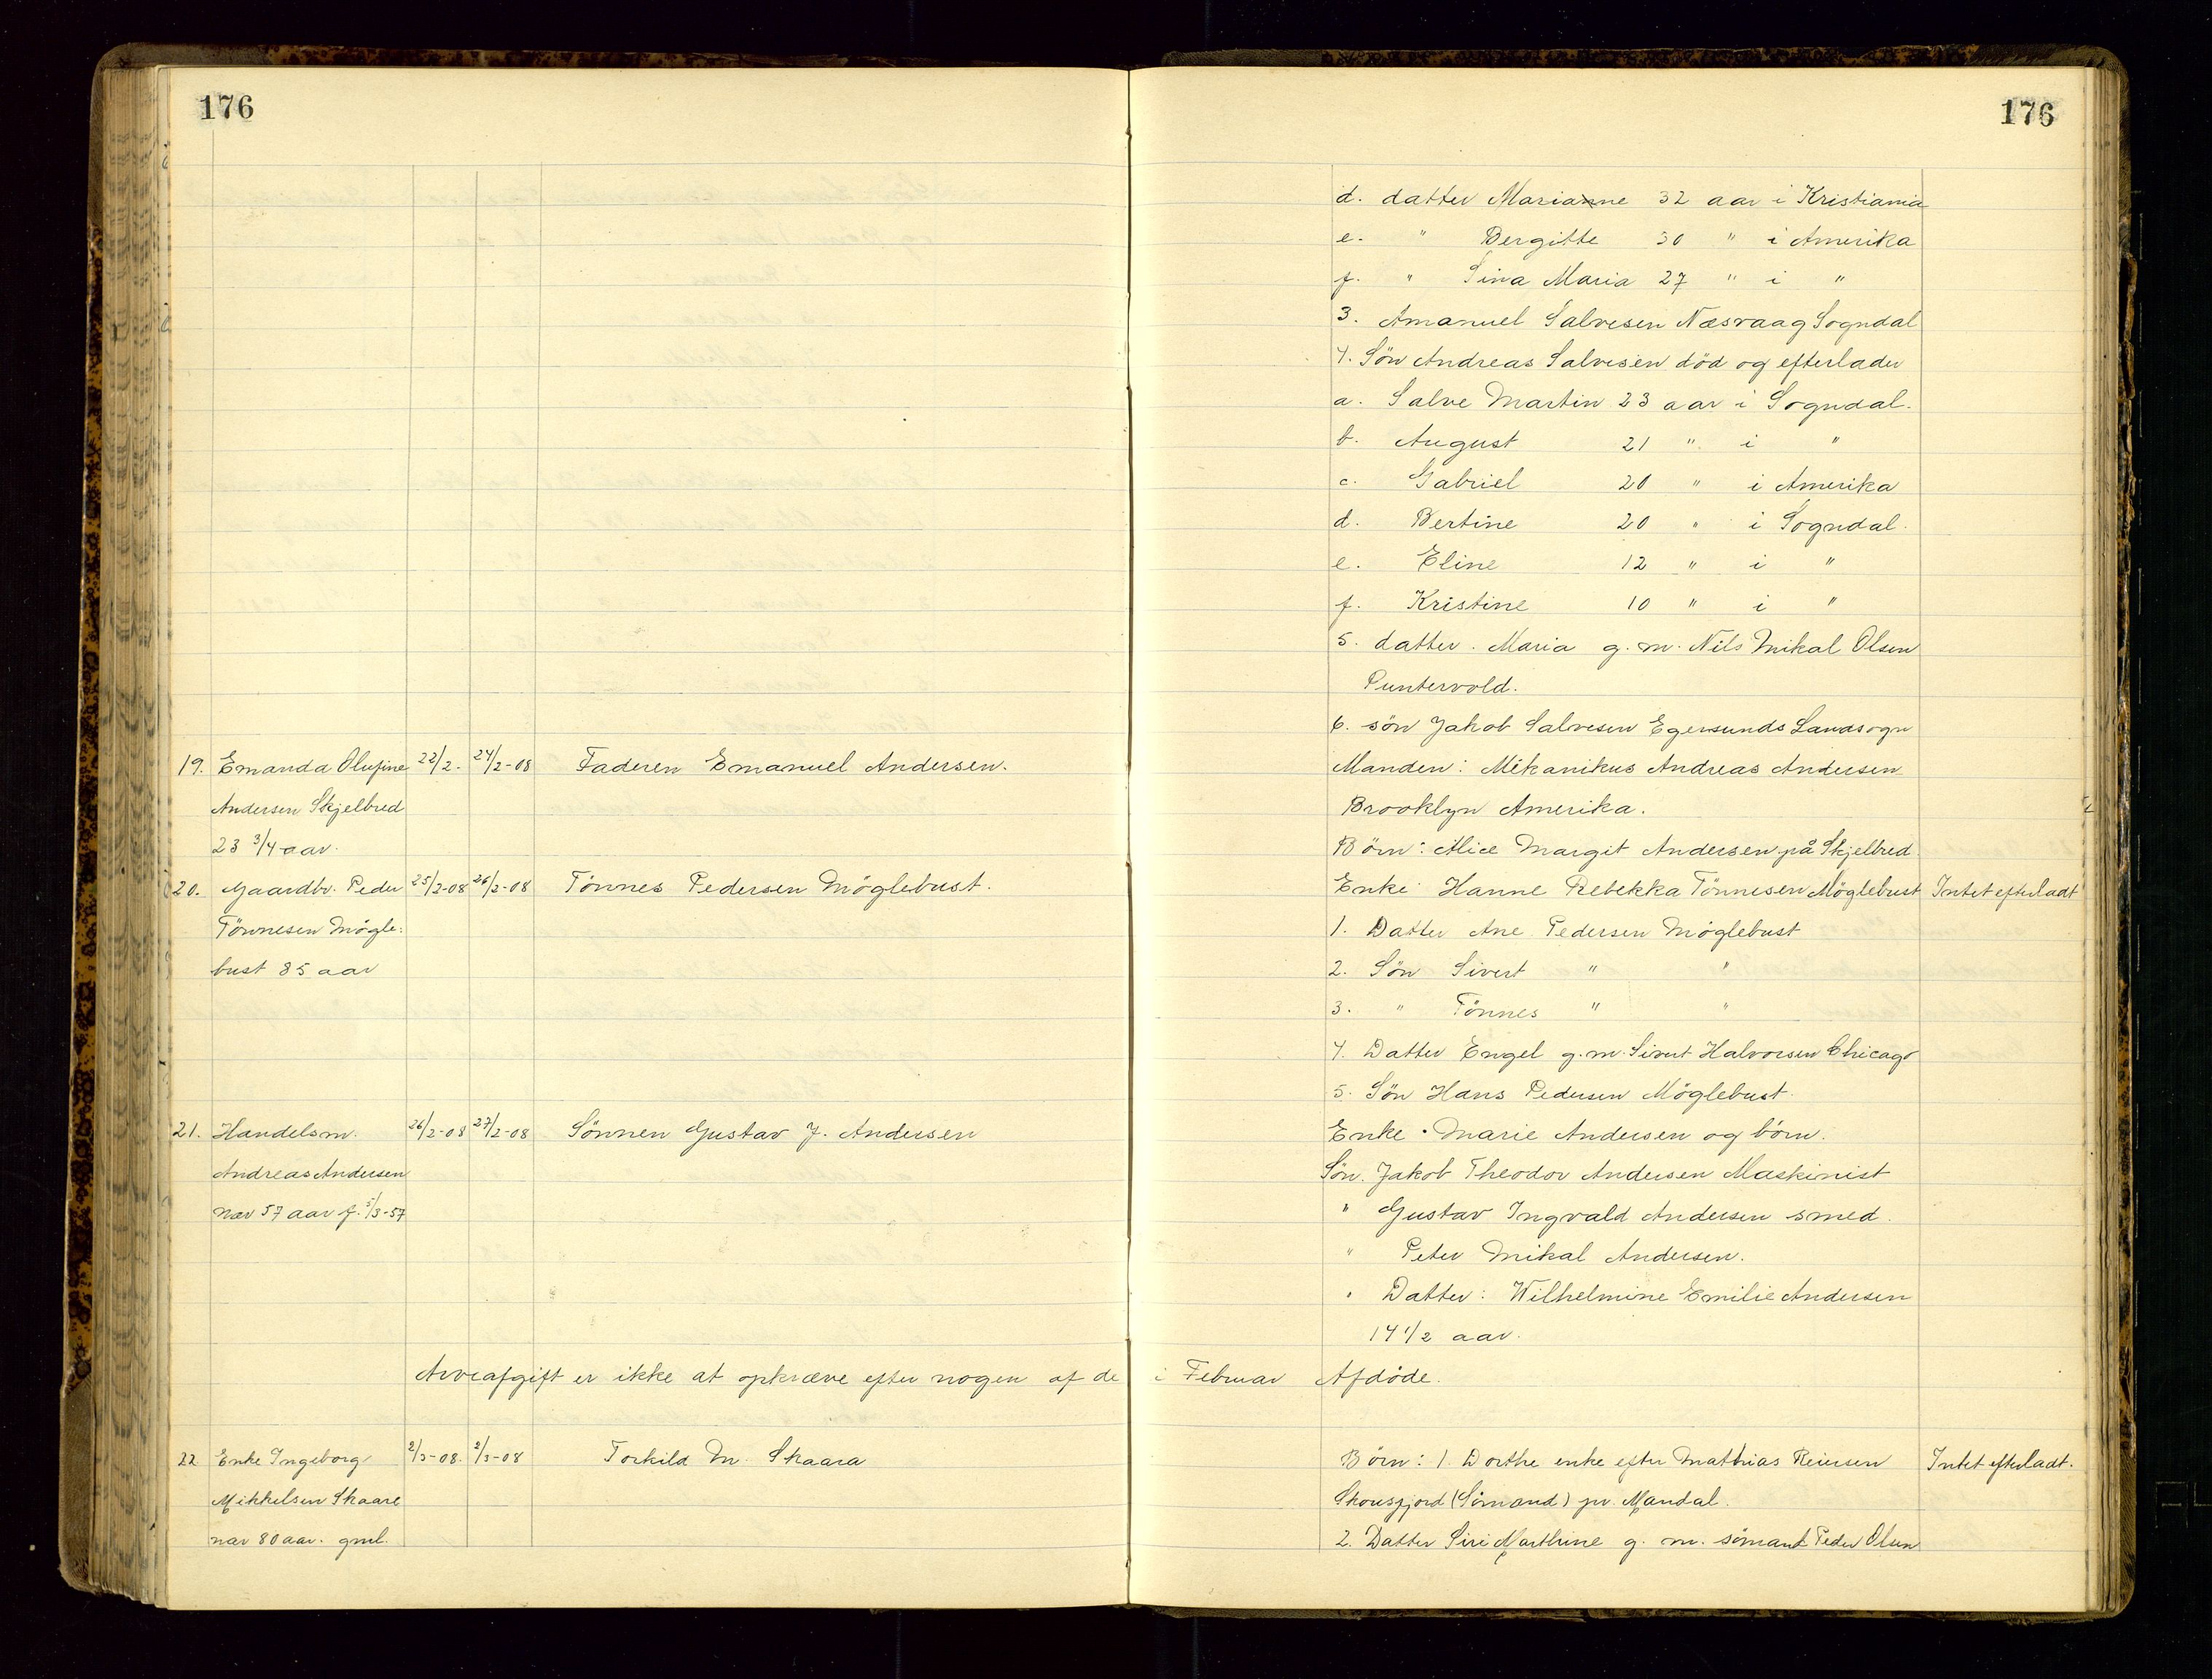 176
176
d. datter Marianne 32 aar i Kristiania
e. " Bergitte 30 " i Amerika
f. " Sina Maria 27 " i "
3. Amanuel Salvesen Næsvaag Sogndal
4. Sön Andreas Salvesen död og efterlader
a. Salve Martin 23 aar i Sogndal.
b. August 21 " i "
c. Gabriel 20 " i Amerika
d. Bertine 20 " i Sogndal.
e. Eline 12 " i "
f. Kristine 10 " i "
5. datter. Maria g. m. Nils Mikal Olsen
Puntervold.
6. sön Jakob Salvesen Egersunds Landsogn
19. Emanda Olufine 22/2. 24/2-08 Faderen Emanuel Andersen. Manden: Mekanikus Andreas Andersen
Andersen Skjelbred Brooklyn Amerika.
23 3/4 aar. Börn: Alice Margit Andersen på Skjelbred
20. Gaardbr. Peder 25/2-08 26/2-08 Tönnes Pedersen Möglebust. Enke Hanne Rebekka Tönnesen Möglebust Intet efterladt
Tönnesen Mögle: 1. Datter Ane Pedersen Möglebust
bust 85 aar 2. Sön Sivert " "
3. " Tönnes " "
4. Datter Engel g. m. Sivert Halvorsen Chicago
5. Sön Hans Pedersen Möglebust.
21. Handelsm. 26/2-08 27/2-08 Sönnen Gustav J. Andersen Enke. Marie Andersen og börn.
Andreas Andersen Sön. Jakob Theodor Andersen Maskinist
nær 57 aar f. 5/3-57 " Gustav Ingvald Andersen smed.
" Peter Mikal Andersen.
" Datter: Wilhelmine Emilie Andersen
14 1/2 aar.
Arveafgift er ikke at opkræve efter nogen af de i Februar Afdöde.
22 Enke Ingeborg 2/3-08. 2/3-08 Torkild M. Skaara Börn: 1. Dorthe enke efter Mathias Reiersen Intet efterladt.
Mikkelsen Skaare (Sömand) pr. Mandal.
nær 80 aar. gml. 2. Datter Siri Marthine g. m. sömand Peder Olsen